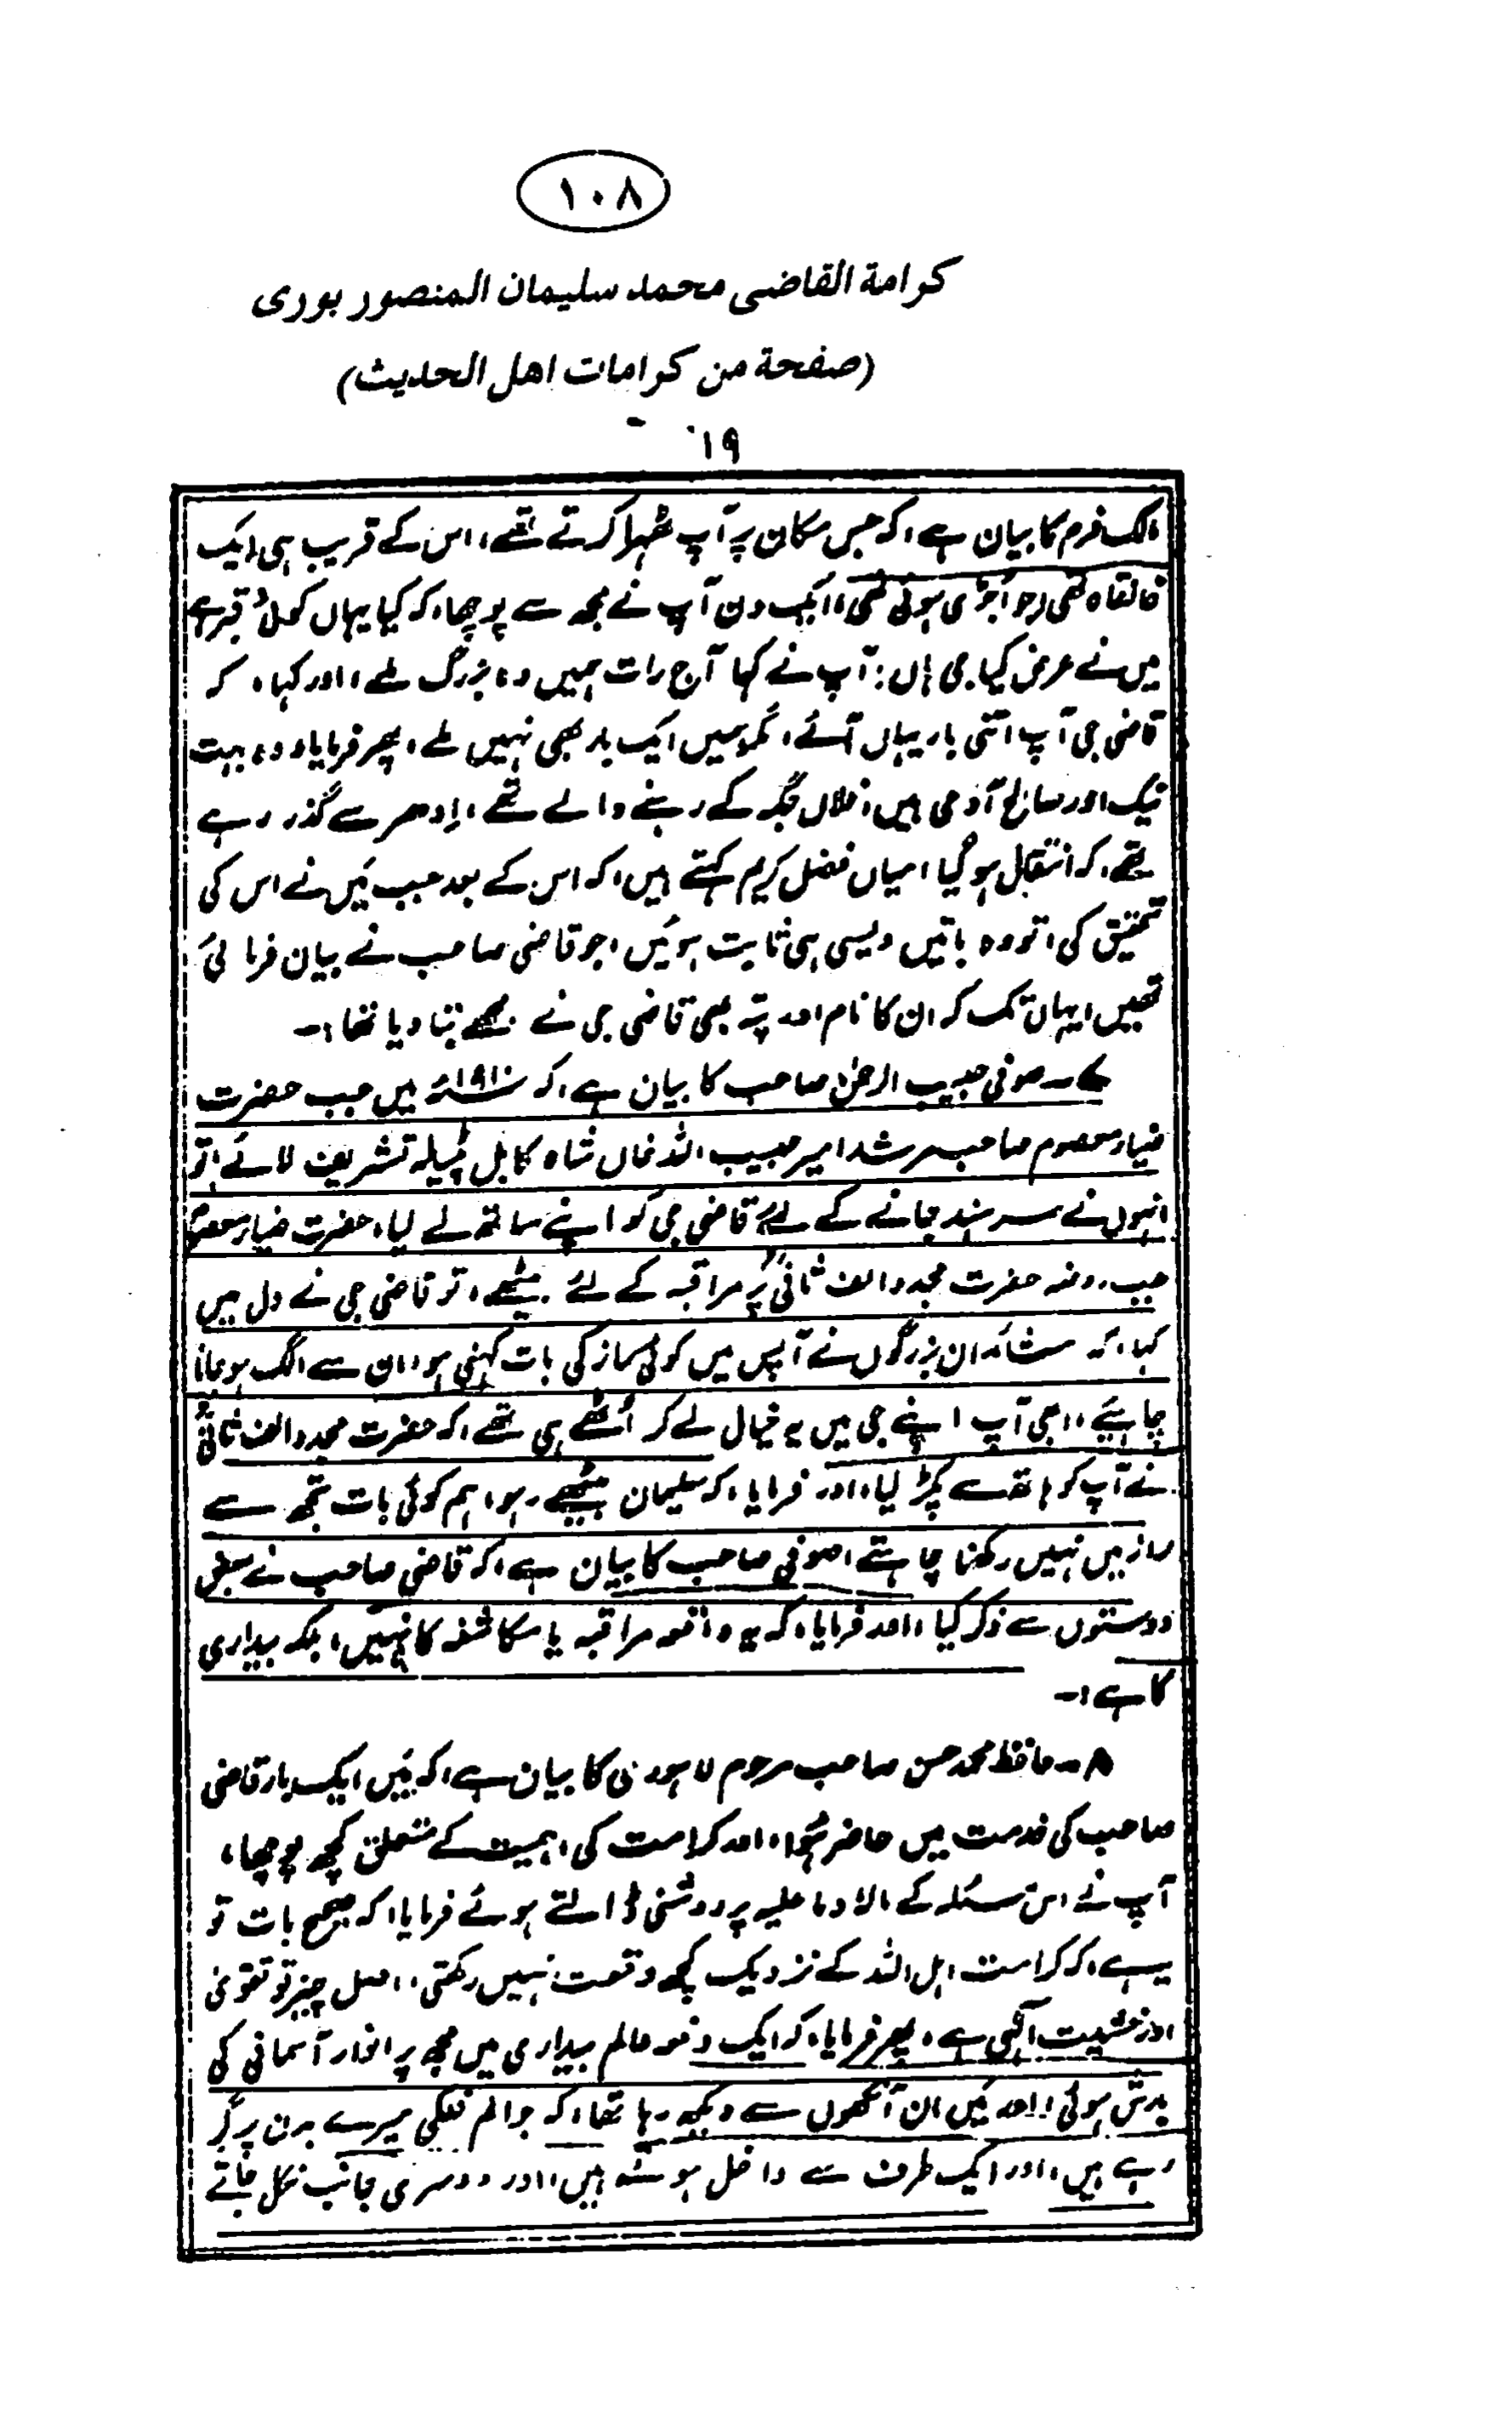 ١٠٨
كرامة القاضى محمد سليمان المنصور بورى
(صفحة من كرامات اهل الحديث)
١٩
مالک فرم کا بیان ہے، کہ جس مکان پر آپ ٹھہرا کرتے تھے، اس کے قریب ہی ایک
خانقاہ تھی (جو اُجڑی ہوئی تھی)، ایک دن آپ نے مجھ سے پوچھا، کہ کیا یہاں کوئی قبر ہے
میں نے عرض کیا۔ جی ہاں: آپ نے کہا آج رات ہمیں وہ بزرگ ملے، اور کہا، کہ
قاضی جی آپ اتنی بار یہاں آئے، مگر ہمیں ایک بار بھی نہیں ملے، پھر فرمایا وہ بہت
نیک اور صالح آدمی ہیں، فلاں جگہ کے رہنے والے تھے، اِدھر سے گذر رہے
تھے، کہ انتقال ہو گیا، میاں فضل کریم کہتے ہیں، کہ اس کے بعد جب مَیں نے اس کی
تحقیق کی، تو وہ باتیں ویسی ہی ثابت ہوئیں، جو قاضی صاحب نے بیان فرمائی
تھیں، یہاں تک کہ ان کا نام اور پتہ بھی قاضی جی نے مجھے بتا دیا تھا،۔
۷۔ صوفی حبیب الرحمٰن صاحب کا بیان ہے، کہ ۱۹۱۰ء میں جب حضرت
ضیاء معصوم صاحب مرشد امیر حبیب اللہ خاں شاہ کابل پٹیالہ تشریف لائے، تو
انہوں نے سرہند جانے کے لئے قاضی جی کو اپنے ساتھ لے لیا، حضرت ضیاء معصوم
جب روضہ حضرت مجدد الف ثانیؒ پر مراقبہ کے لئے بیٹھے، تو قاضی جی نے دل میں
کہا، کہ شائد ان بزرگوں نے آپس میں کوئی راز کی بات کہنی ہو، ان سے الگ ہو جانا
چاہیئے، ابھی آپ اپنے جی میں یہ خیال لے کر اُٹھے ہی تھے، کہ حضرت مجدد الف ثانیؒ
نے آپ کو ہاتھ سے پکڑ لیا، اور فرمایا، کہ سلیمان بیٹھے رہو، ہم کوئی بات تجھ سے
راز میں نہیں رکھنا چاہتے، صوفی صاحب کا بیان ہے، کہ قاضی صاحب نے بعض
دوستوں سے ذکر کیا، اور فرمایا، کہ یہ واقعہ مراقبہ یا مکاشفہ کا نہیں، بلکہ بیداری
کا ہے،۔
۸۔ حافظ محمد حسن صاحب مرحوم لاہوری کا بیان ہے، کہ مَیں ایک بار قاضی
صاحب کی خدمت میں حاضر ہُوا، اور کرامت کی اہمیت کے متعلق کچھ پوچھا،
آپ نے اس مسئلہ کے مالا وما علیہ پر روشنی ڈالتے ہوئے فرمایا، کہ صحیح بات تو
یہ ہے، کہ کرامت اہل اللہ کے نزدیک کچھ وقعت نہیں رکھتی، اصل چیز تو تقویٰ
اور خشیت الٰہی ہے، پھر فرمایا، کہ ایک دفعہ عالم بیداری میں مجھ پر انوار آسمانی کی
بارش ہوئی، اور مَیں ان آنکھوں سے دیکھ رہا تھا، کہ جو الم فلکی میرے بدن پر گر
رہے ہیں، اور ایک طرف سے داخل ہوتے ہیں، اور دوسری جانب نکل جاتے